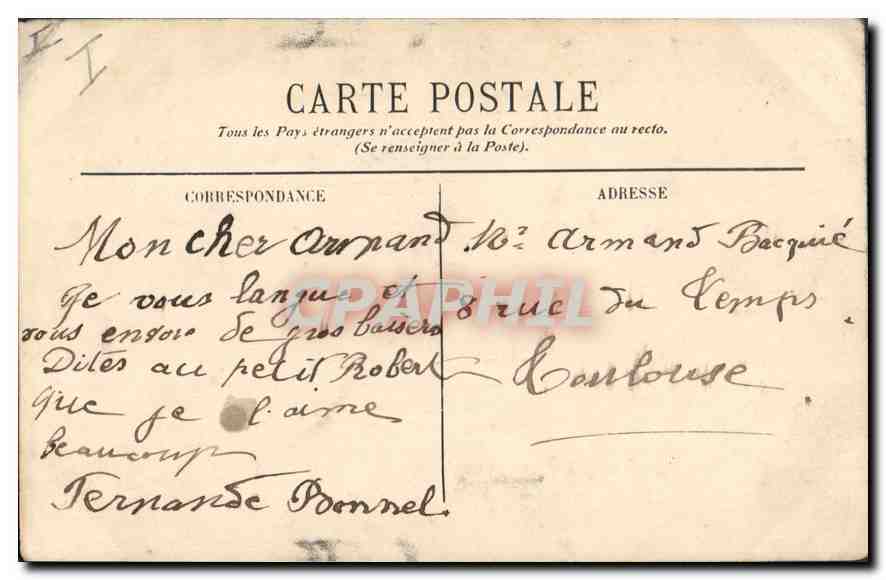 CARTE POSTALE
Tous les Pays étrangers n'acceptent pas la Correspondance au recto.
(Se renseigner à la Poste).
CORRESPONDANCE
Mon cher Armand
Je vous langui et
vous envoie de gros baisers
Dites au petit Robert
que je l'aime
beaucoup
Fernande Bonnel.
ADRESSE
Mr Armand Bacquié
8 rue du Temps
Toulouse
CPAPHIL